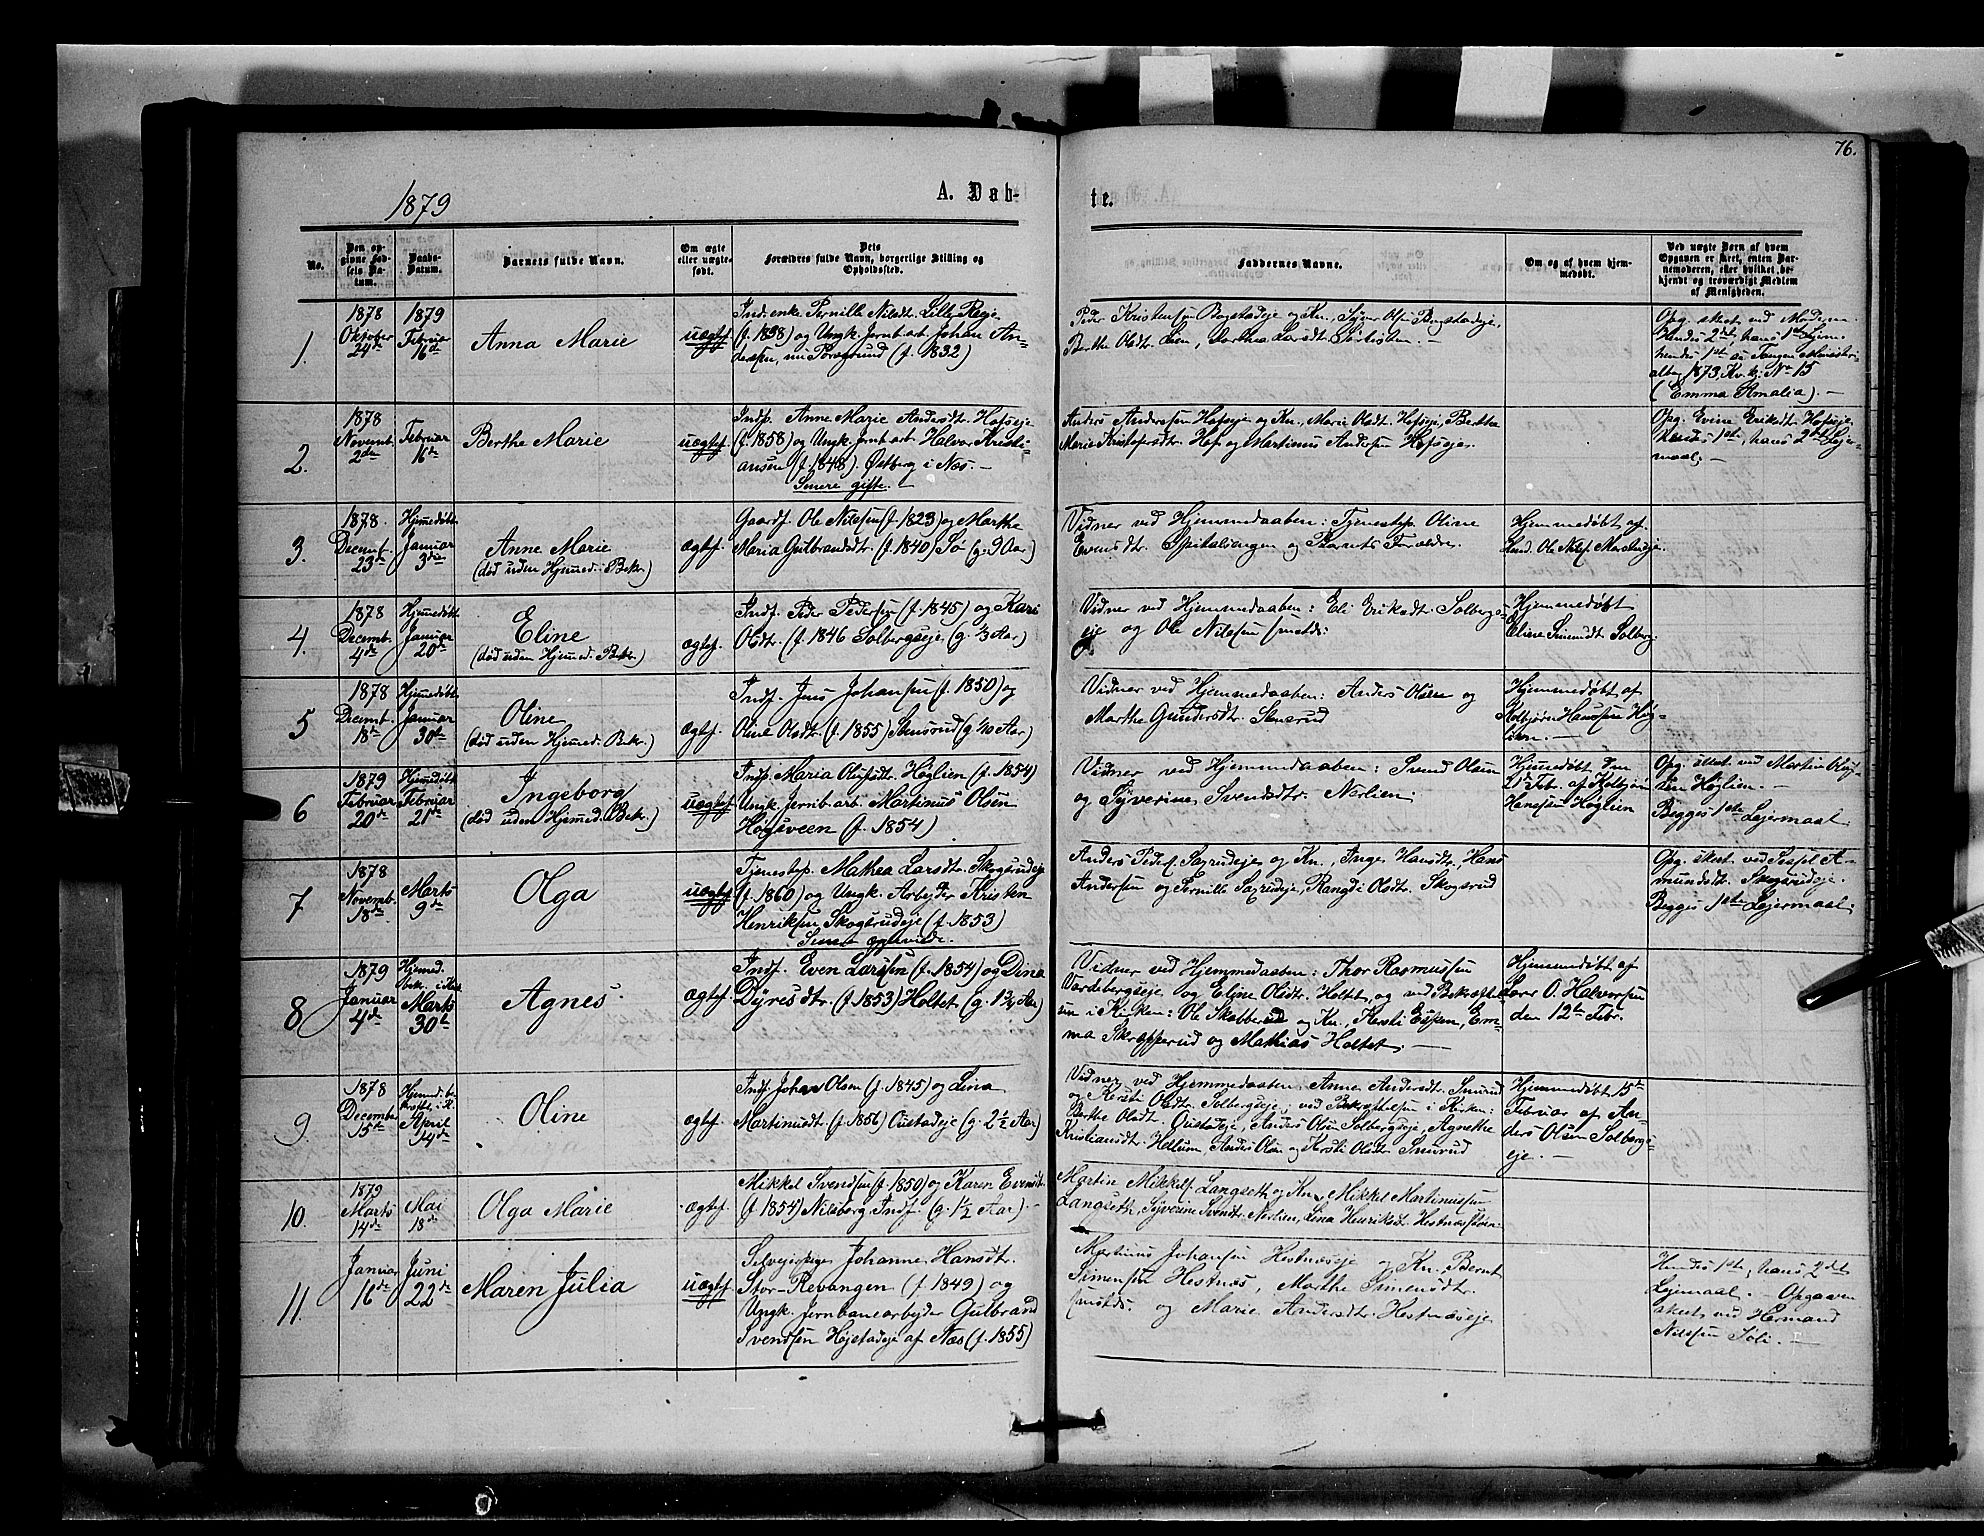 76.
1879
A. Døb-
te.
No.
Den op-
givne Fød-
sels Da-
tum.
Daabs-
Datum.
Barnets fulde Navn.
Om ægte
eller uægte
født.
Dets
Forældres fulde Navn, borgerlige Stilling og
Opholdssted.
Faddernes Navne.
Om og af hvem hjem-
medøbt.
Ved uægte Børn af hvem
Opgaven er sket, enten Bar-
nemoderen, eller hvilket be-
kjendt og troværdigt Medlem
af Menigheden.
1.
1878
Oktober
24de
1879
Februar
16de
Anna Marie
uægtef.
Ind. enke Pernille Nilsdt. Lille
(f. 1838) og Ungk. Jernb. arb. Johan An-
dersen, nu Porsgrund (f. 1832)
Peder Kristensen Bogstadeje og Kn., Olsen Bogstadeje,
Berthe Olsdt. Lien, Dorthea Larsdt.
Opg. skeet ved Moderen.
Hendes 2det, hans 1ste Lejerm.
hendes 1ste se Tangen Ministeri-
albog 1873, Kv. kj. No 15
(Emma Amalia). —
2.
1878
Novemb.
2den
Februar
16de
Berthe Marie
uægtef.
Indp. Anne Marie Andersdt. Hofseje
(f. 1858) og Ungk. Jernb. arb. Halvor Kristi-
ansen (f. 1848). Østberg i Næs. —
Senere gifte. —
Anders Andersen Hofseje og Kn., Marie Olsdt. Hofseje, Berthe
Marie Kristofersdt. Hof og Martinus Andersen Hofseje.
Opg. Evine Eriksdt. Hofseje.
Hendes 1ste, hans 2det Lejer-
maal. —
3.
1878.
Decemb.
23de
Hjemmedøbt
Januar
3die
Anne Marie
(død uden Hjemmed. Bekr.)
ægtef.
Gaardf. Ole Nilsen (f. 1823) og Marthe
Maria Gulbrandsdt. (f. 1840) Sø (g. 9 Aar)
Vidner ved Hjemmedaaben: Tjenestep. Oline
Evensdt. Spitalengen og Barnets Forældre.
Hjemmedøbt af
Ind. Ole Nils.
4.
1878
Decemb.
4de
Hjemmedøbt
Januar
20de
Eline
(død uden Hjemmed. Bekr.)
ægtef.
Indf. Peder Pedersen (f. 1845) og Kari
Olsdt. (f. 1846 Solbergseje. (g. 1/3 Aar)
Vidner ved Hjemmedaaben: Eli Eriksdt. Solbergs-
eje og Ole Nilsen smstds.
Hjemmedøbt
Eline Simensdt. Solberg.
5
1878
Decemb.
18de
Hjemmedøbt
Januar
30te
Oline
(død uden Hjemmed. Bekr.)
ægtef.
Indf. Jens Johansen (f. 1850) og
Oline Olsdt. (f. 1855) Smerud (g. 1/10 Aar)
Vidner ved Hjemmedaaben: Anders Olsen og
Marthe Gundersdt. Smerud
Hjemmedøbt af
Kolbjørn Hansen Høg-
lien. —
6
1879
Februar
20de
Hjemmedøbt
Februar
21de
Ingeborg
(død uden Hjemmed. Bekr.)
uægtef.
Indp. Maria Olufsdt. Høglien (f. 1854)
Ungk. Jernb. arb. Martinus Olsen
Høgsveen (f. 1854)
Vidner ved Hjemmedaaben: Svend Olsen
og Syverine Svendsdt. Nerlien.
Hjemmedøbt den
21de Febr. af Kolbjørn
Hansen Høglien
Opg. skeet ved Martin Oluf-
sen Høglien. —
Begges 1ste Lejermaal.
7
1878
Novemb.
18de
Marts
9de
Olga
uægtef.
Tjenestep. Mathea Larsdt. Skogsrudeje
(f. 1860) og Ungk. Arbejder Kristen
Henriksen Skogsrudeje (f. 1853)
Senere ægteviede.
Anders Peders. Saxrudeje og Kn., Inger Hansdt., Hans
Andersen og Pernille Saxrudeje, Rangdi Olsdt. Skogsrud
Opg. skeet ved Sissel A-
mundsdt. Skogsrudeje.
Begges 1ste Lejermaal.
8
1879
Januar
4de
Hjemmed.
bekr. i Kirk.
Marts
30te
Agnes.
ægtef.
Indf. Even Larsen (f. 1854) og Dina
Dyresdt. (f. 1853) Holtet (g. 1 3/4 Aar)
Vidner ved Hjemmedaaben: Thor Rasmussen
Vordebergseje og Eline Olsdt. Holtet, og ved Bekræftel-
sen i Kirken: Ole Skabberud og Kn., Kersti Espen, Em-
ma Skrepperud og Mathias Holtet. —
Hjemmedøbt af
Lærer O. Halvorsen
den 12te Febr.
9
1878
December
15de
Hjemmed. be-
kræftet i K.
April
14de
Oline
ægtef.
Indf. Johan Olsen (f. 1845) og Lina
Martinusdt. (f. 1856) Qvestadeje (g. 2 1/2 Aar)
Vidner ved Hjemmedaaben: Anne Andersdt. Smerud
og Kersti Olsdt. Solbergseje; ved Bekræftelsen i Kirken:
Berthe Olsdt. Qvestadeje, Anders Olsen Solbergseje, Agnethe
Kristiansdt. Hellum, Anders Olsen og Kersti Olsdt. Smerud
Hjemmedøbt 15de
Februar af An-
ders Olsen Solbergs-
eje. —
10.
1879
Marts
14de
Mai
18de
Olga Marie
ægtef.
Mikkel Svendsen (f. 1850) og Karen Evensdt.
(f. 1854) Nilsberg Indf. (g. 1 1/2 Aar). —
Martin Mikkels. Langseth og Kn., Mikkel Martinussen
Langseth, Syverine Svendsdt. Nerlien, Lina Henriksdt.
11.
Januar
16de
Juni
22de
Maren Julia
uægtef.
Selvejerpige Johanne Hansdt.
Stor-Revangen (f. 1849) og
Ungk. Jernbanearbejder Gulbrand
Svendsen Hejstadeje af Næs (f. 1855)
Martinus Johansen Hestnæseje og Kn., Bernt
Simensen Hestnæs, Marthe Simensdt.
smstds. og Marie Andersdt. Hestnæseje.
Hendes 1ste, hans 2det
Lejermaal. — Opgaven
skeet ved Herman
Nilssen Sæli. —